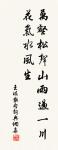 萬壑松聲山雨過一川
花氣水風生